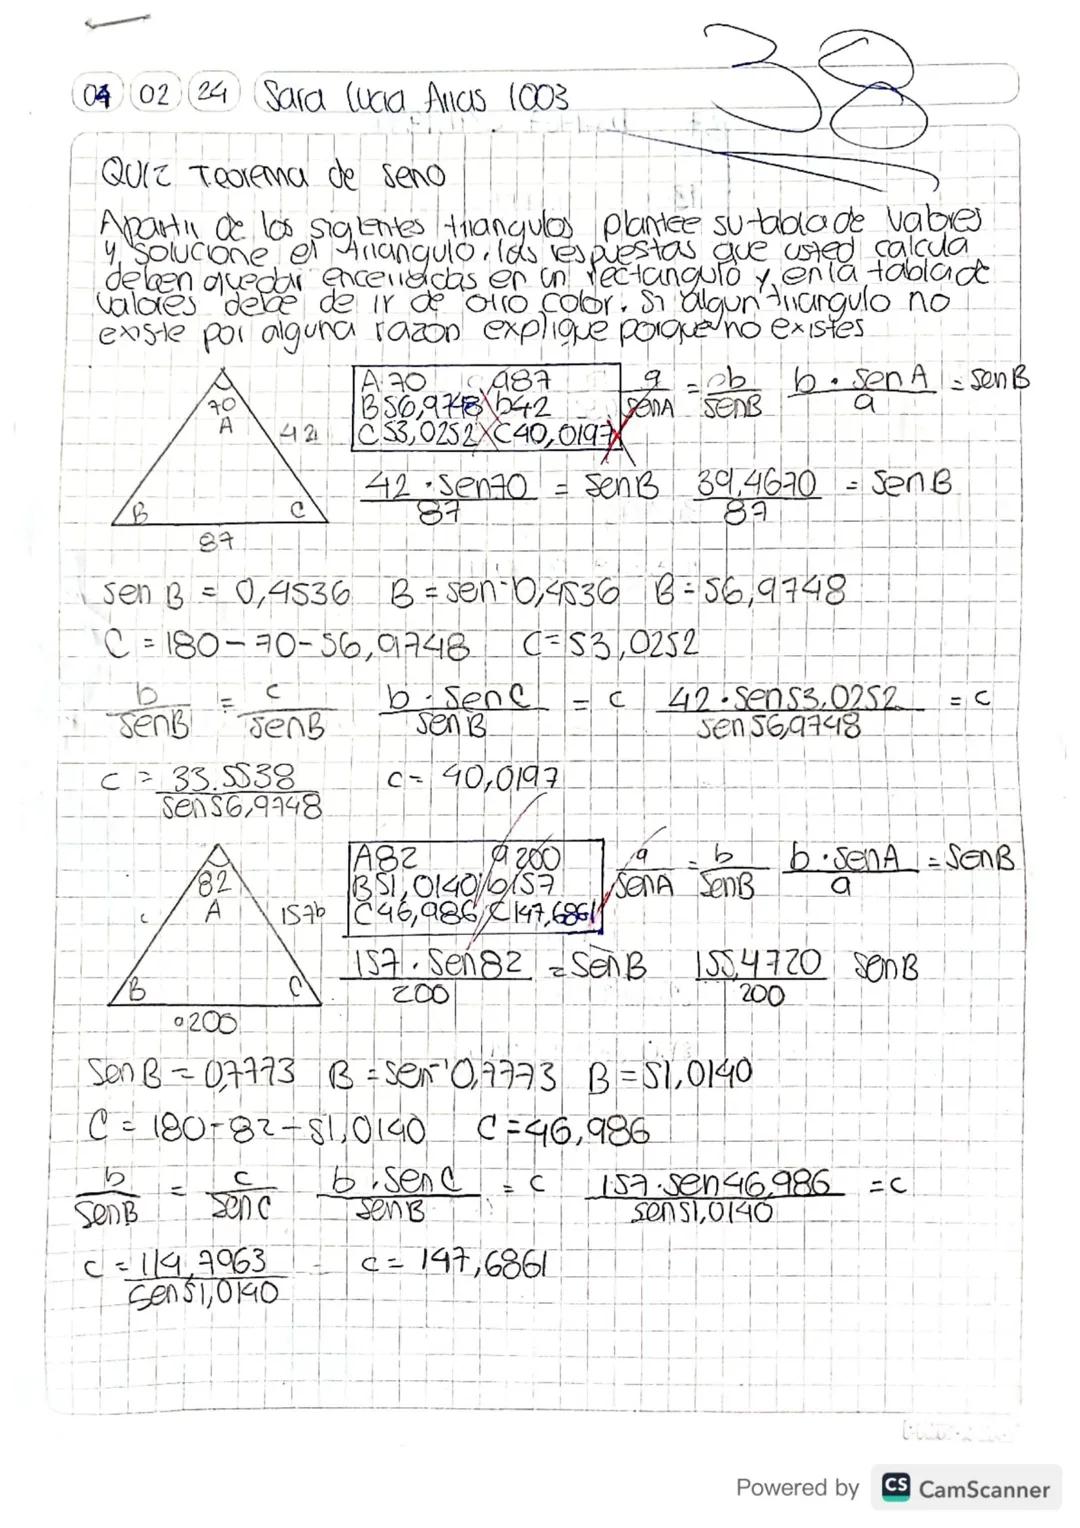 38
04 02 24 Sara Lucia Arias 1003
QUIZ Teorema de seno
Apartir de los sigientes triangulos plantee su tabla de valores
y solucione el triangulo. las respuestas que usted calcula
deben quedar encerradas en un rectangulo y en la tabla de
valores debe de ir de otro color. Si algun triangulo no
existe por alguna razon explique porque no existes
70
A
42
B C
87
A 70 a87
B 56,9748 b42
C 53,0252 C40,0197
a/senA = b/senB b · senA/a = senB
42 · sen70/87 = senB 39,4670/87 = senB
sen B = 0,4536 B = sen⁻0,4536 B = 56,9748
C = 180-70-56,9748 C=53,0252
b/senB = c/senB b · senC/senB = c 42 · sen53,0252/sen56,9748 = c
c = 33.5538/sen56,9748 c= 40,0197
82
A
c 157b
B C
a200
A82 a 200
B51,0140 b157
C46,986 C147,6861
a/senA = b/senB b · senA/a = senB
157 · sen82/200 = senB 155,4720/200 senB
senB = 0,7773 B = sen⁻¹0,7773 B = 51,0140
C = 180-82-51,0140 C=46,986
b/senB = c/senC b · senC/senB = c 157 · sen46,986/sen51,0140 = c
c = 114,7963/sen51,0140 c = 147,6861
Powered by CS CamScanner